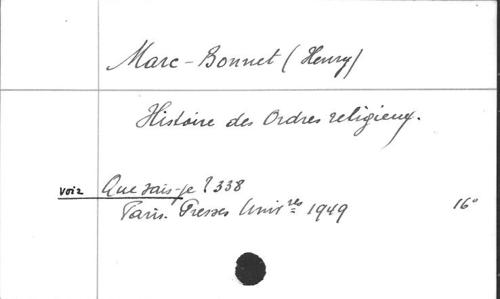 Marc-Bonnet (Henry)
Histoire des Ordres religieux.
voir Que sais-je ? 338
Paris. Presses Univ.res 1949 16°